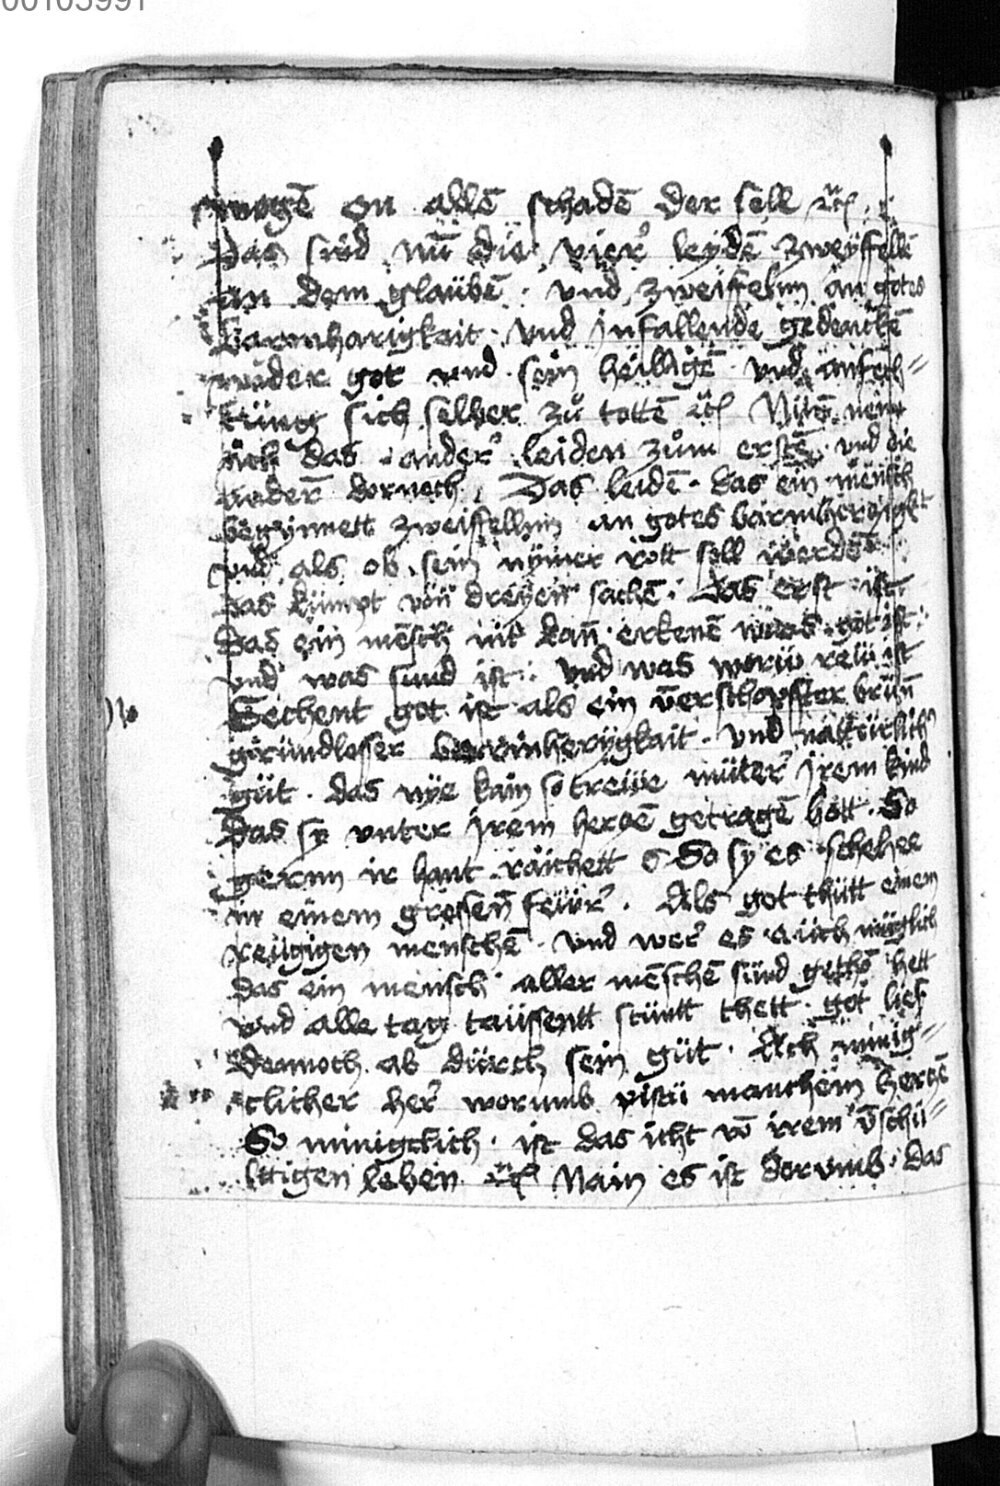 mogē on allē schadē der sell ꝛc̄
Das sind nu̅ die vier leydē zweyffellē
an dem glaübē · vnd zweiffelnn an gotes
barmhariigkait · vnd jnfallende gedenckē
wider got vnd sein heilligē · vnd anfech=
tüng sich selber zů tottē ꝛc̄ Nu̅
ich das ander leiden zům erstē vnd die
andern̄ dornoch · Das leidē · das ein mensch
begynnett zweiffellnn an gotes barmherczigkt
vnd als ob sein nymer rott sell werdē
das kümpt von dreyen sachē · das erst ist
Das ein mēsch nit kan̄ erkenē was got ist
vnd was sund ist · vnd was worü relü ist
Sechent got ist als ein verschopffter brün̄
gründlosser barmherczygkait · vnd natürlich
güt · das nye kain so treüe müter jrem kind
Das sy vnter jrem herczē getragē hött · So
gernn ir hant raichett So sy es sehe
in einem grossen̄ feür · Als got thütt einem
reügigen menschē · vnd wer es auch müglich
das ein mensch aller mēschē sünd gethō hett
vnd alle tag taüssentt stünt thett · got lies
dennoch ab dürch sein güt · Ach minig=
clicher her worumb pistü manchem herczē
So minigcklich · ist das icht vō irem v̄schü=
lttigen leben ꝛc̄ Nain es ist dorvmb · das